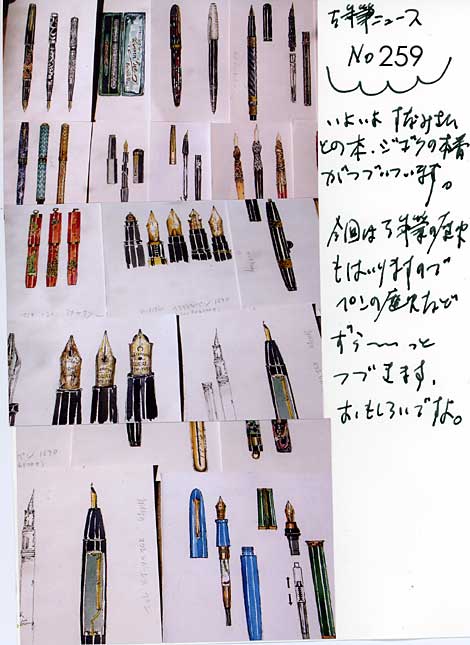 万年筆ニュース
No 259
いよいよ すなみさん
との本.ジゴクの本番
がつづいています。
今回は万年筆の歴史
もはいりますので
ペンの歴史など
ずら〜〜っと
つづきます.
おもしろいですな。